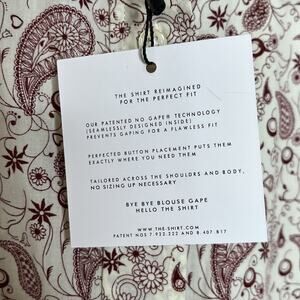 THE SHIRT REIMAGINED
FOR THE PERFECT FIT
OUR PATENTED NO GAPE® TECHNOLOGY
(SEAMLESSLY DESIGNED INSIDE)
PREVENTS GAPING FOR A FLAWLESS FIT
PERFECTED BUTTON PLACEMENT PUTS THEM
EXACTLY WHERE YOU NEED THEM
TAILORED ACROSS THE SHOULDERS AND BODY,
NO SIZING UP NECESSARY
BYE BYE BLOUSE GAPE
HELLO THE SHIRT
WWW.THE-SHIRT.COM
PATENT NOS 7,922,222 AND 8,407,817